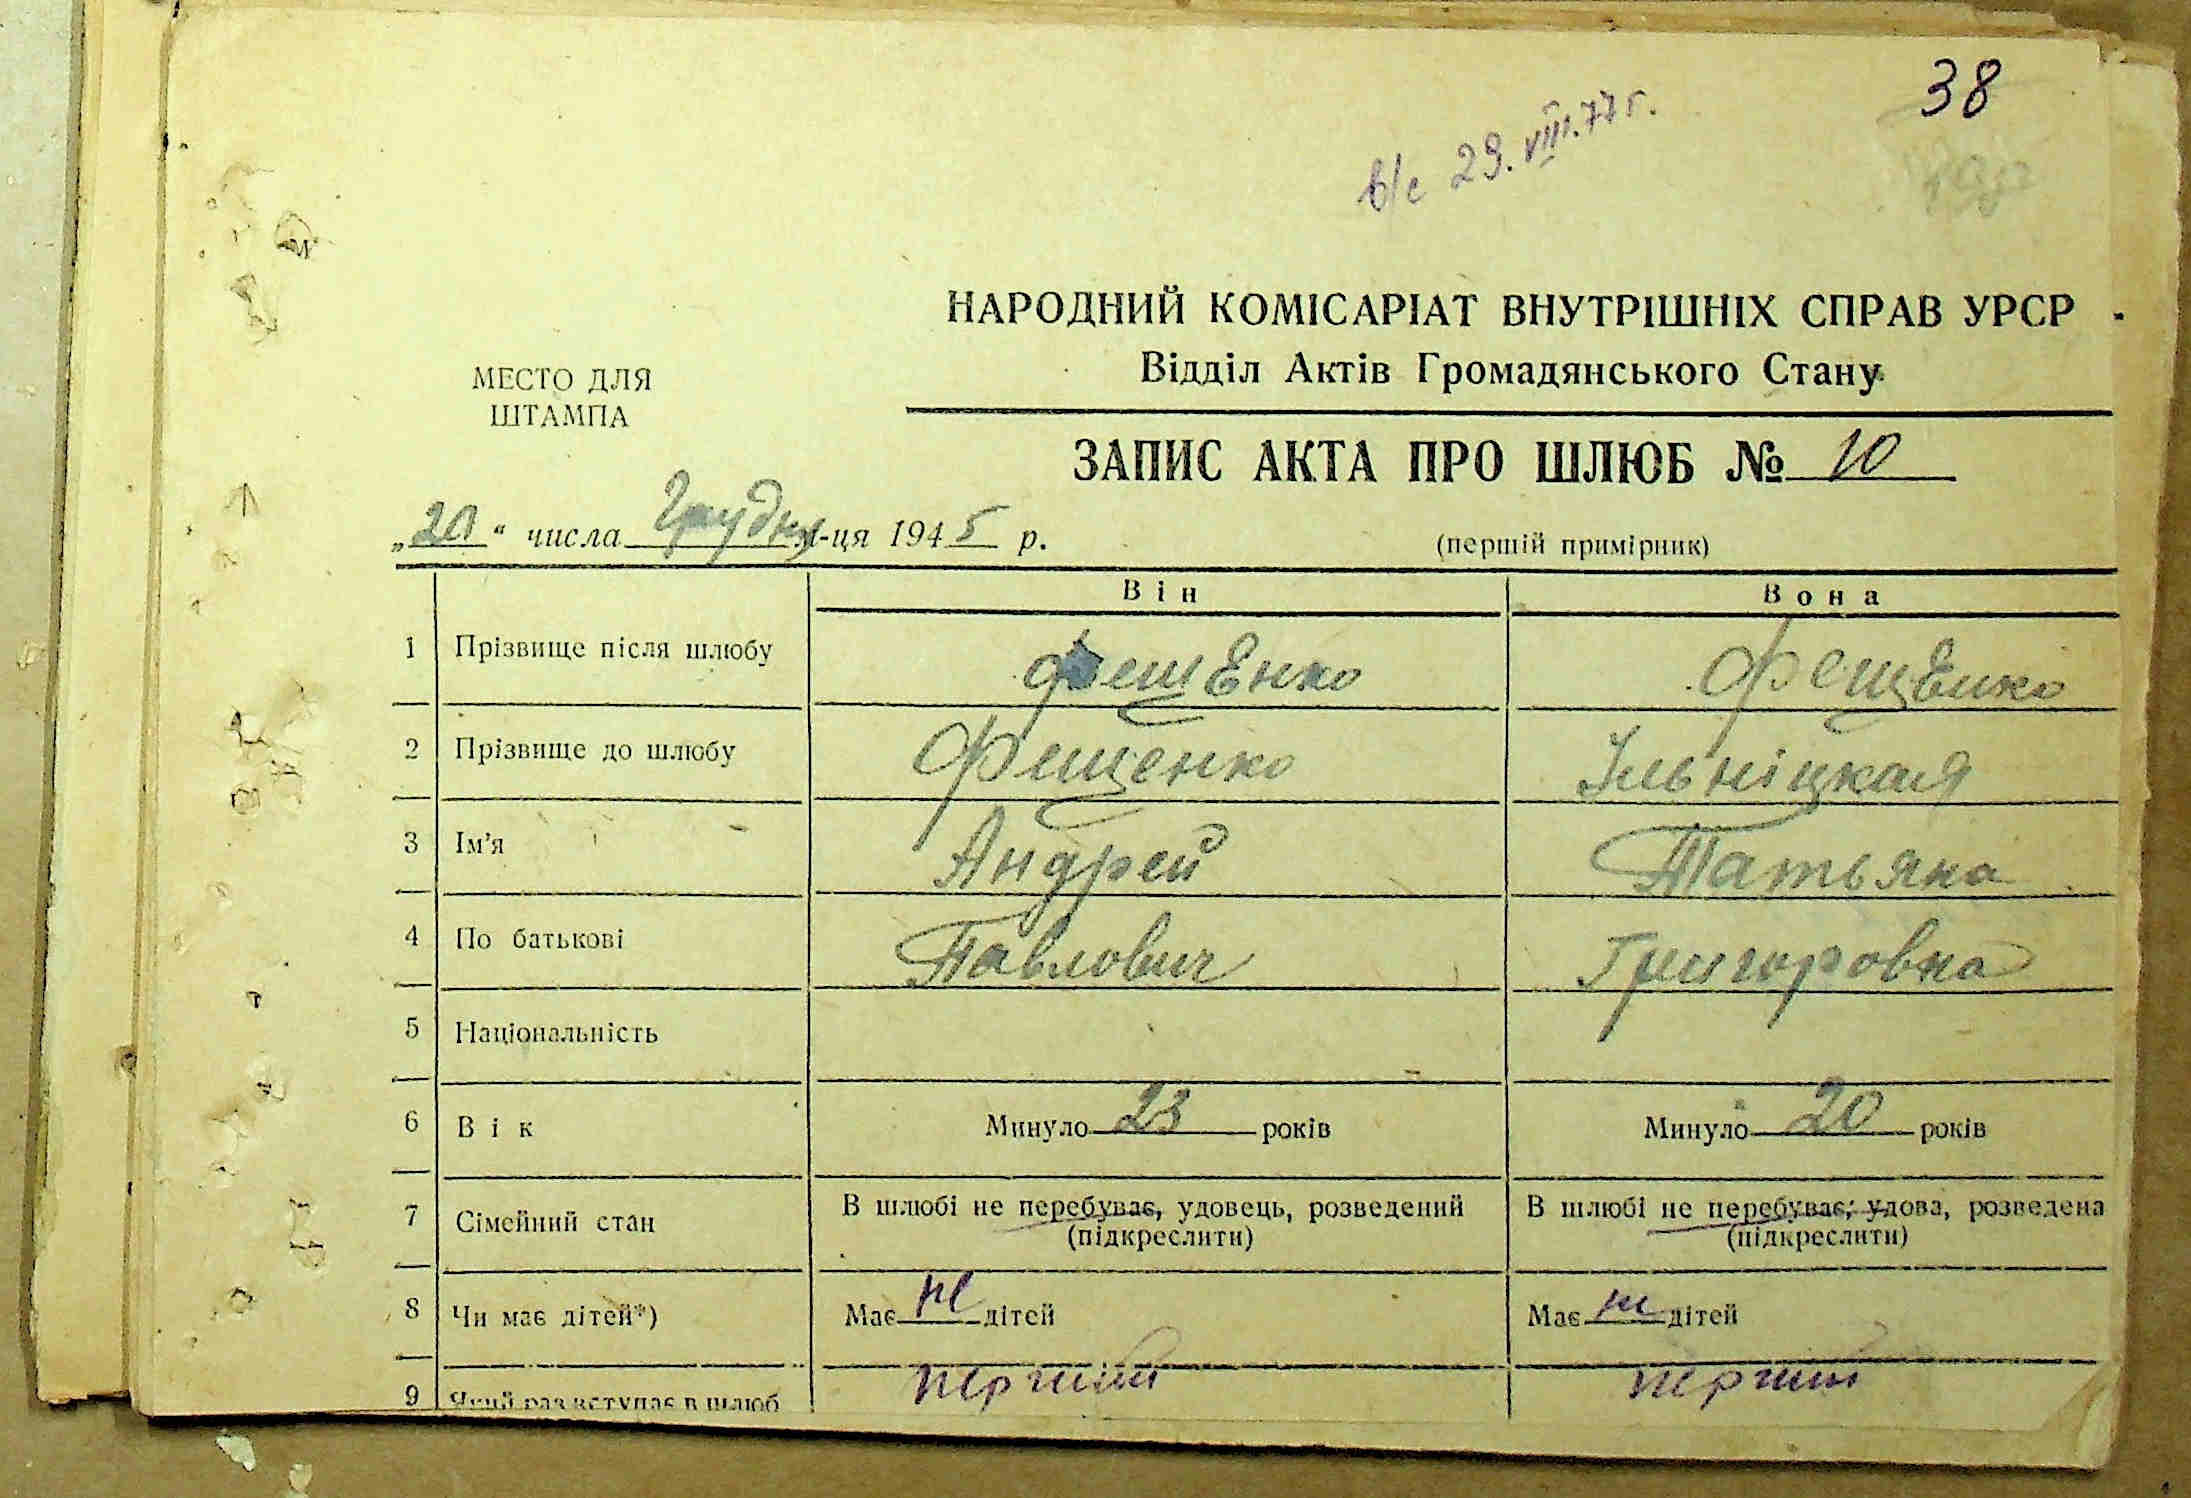 38
в/с 29.VIII.77 г.
НАРОДНИЙ КОМІСАРІАТ ВНУТРІШНІХ СПРАВ УРСР
Відділ Актів Громадянського Стану
МЕСТО ДЛЯ
ШТАМПА
ЗАПИС АКТА ПРО ШЛЮБ № 10
„20“ числа Грудня м-ця 1945 р.
(першій примірник)
Він Вона
1 Прізвище після шлюбу Фещенко Фещенко
2 Прізвище до шлюбу Фещенко Ільніцкая
3 Ім'я Андрей Татьяна
4 По батькові Павлович Григоровна
5 Національність
6 Вік Минуло 23 років Минуло 20 років
7 Сімейний стан В шлюбі не перебуває, удовець, розведений В шлюбі не перебуває, удова, розведена
(підкреслити) (підкреслити)
8 Чи має дітей*) Має не дітей Має не дітей
9 Який раз вступає в шлюб перший перший